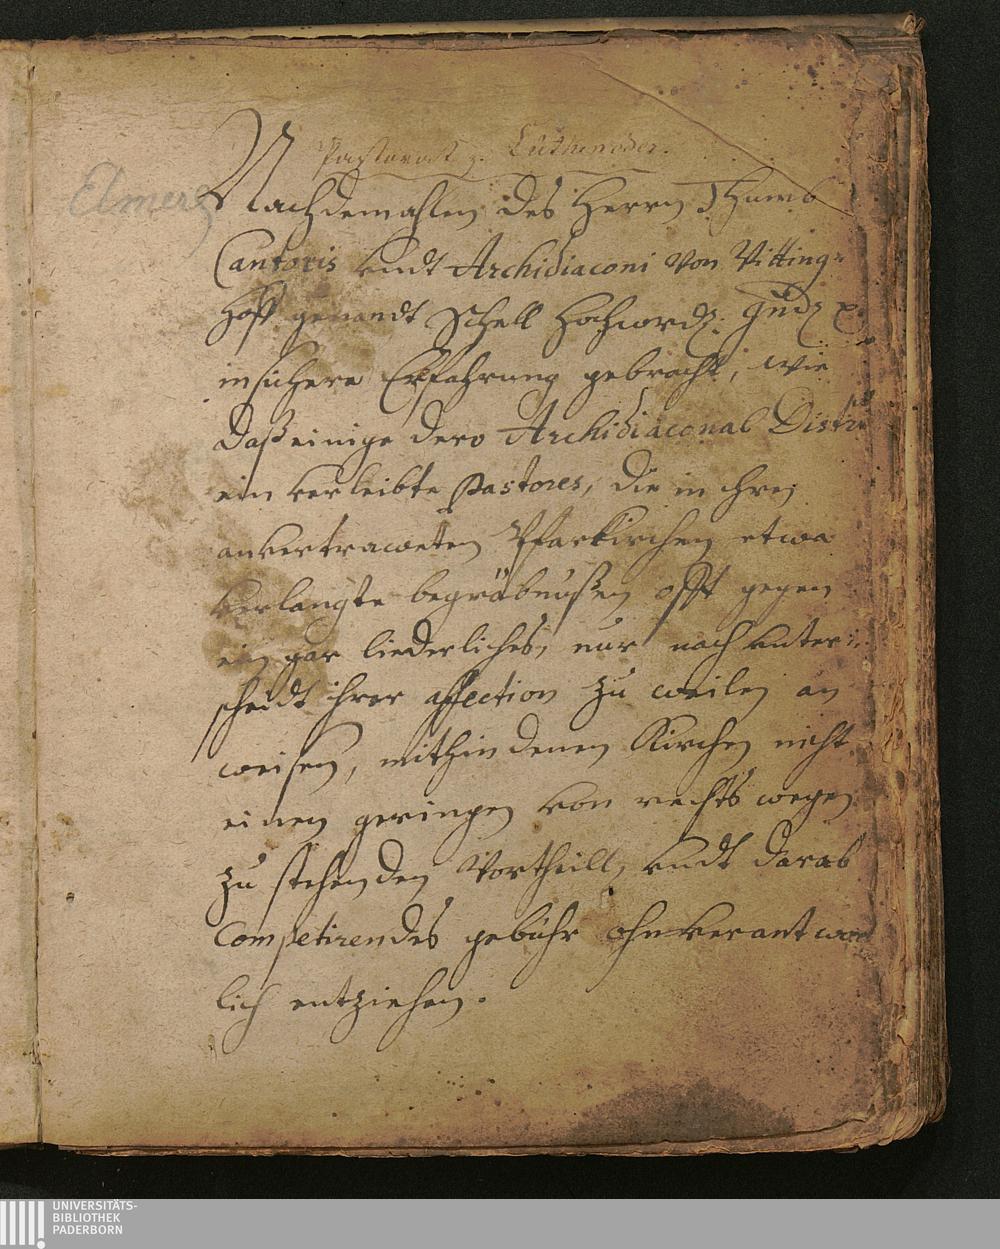 Pastorat z. Lüthmoder.
Elmerz
Nachdemahlen des Herrn Thumb
Cantoris undt Archidiaconi von Vitting-
hoff genandt Schell Hochwürd. Gnd.
in sichere Erfahrung gebracht, wie
daß einige dero Archidiaconal Distri
ein verleibte Pastores, die in ihren
anvertraweten Pfarkirchen etwa
verlangte begräbnußen offt gegen
ein gar liederliches, nur nach unter-
scheidt ihrer affection zu weilen an
weisen, mithin denen Kirchen nicht
einen geringen von rechts wegen
zu stehenden Vortheill, undt darab
Competirendes gebühr ohnverantwor
lich entziehen.
UNIVERSITÄTS-
BIBLIOTHEK
PADERBORN